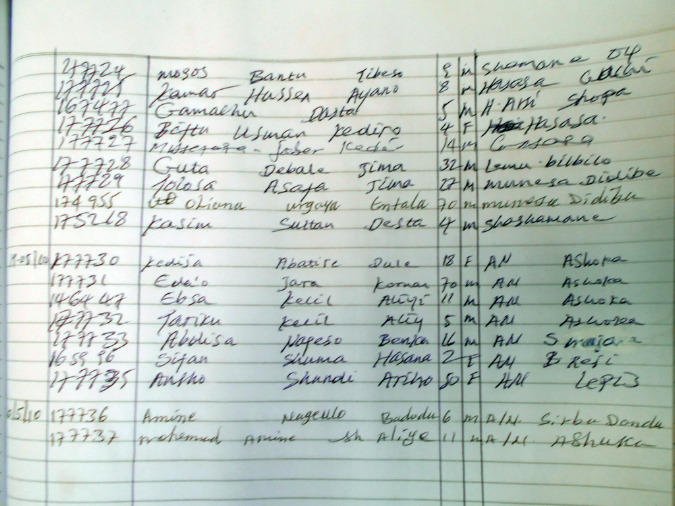 177724 mogos Bantu Tibeso 9 m Shamana 04
177725 Kamar Hussen Ayano 8 m Hasasa
167477 Gamachu Dasta 5 m H. Ami Shopa
177726 Usman Kediro 4 F Hasasa
177727 Jober Kedir 14 m
177728 Guta Debale Jima 32 m Lemu bilbilo
177729 Tolosa Asafa Jima 27 m munesa Didiba
174955 Oliana urgaya Entala 70 m munesa Didibu
175218 Kasim Sultan Desta 4 m Shashamane
177730 Kedija Abatire Dule 18 F AN Ashoka
177731 Edao Jara Kornar 70 m AN Ashoka
146447 Ebsa Kelil Aliyi 11 m AN Ashoka
177732 Tariku Kelil Aliy 5 m AN Ashoka
177733 Abdisa Napeso Benka 16 m AN
165956 Sifan Shuma Hasana 2 F AN B Reji
177735 Shundi Ariho 50 F AN
177736 Amine Nugeulo Badodu 6 m A/N Sirbu Dandu
177737 mohemud Amine sh Aliye 11 m A/N AShuka